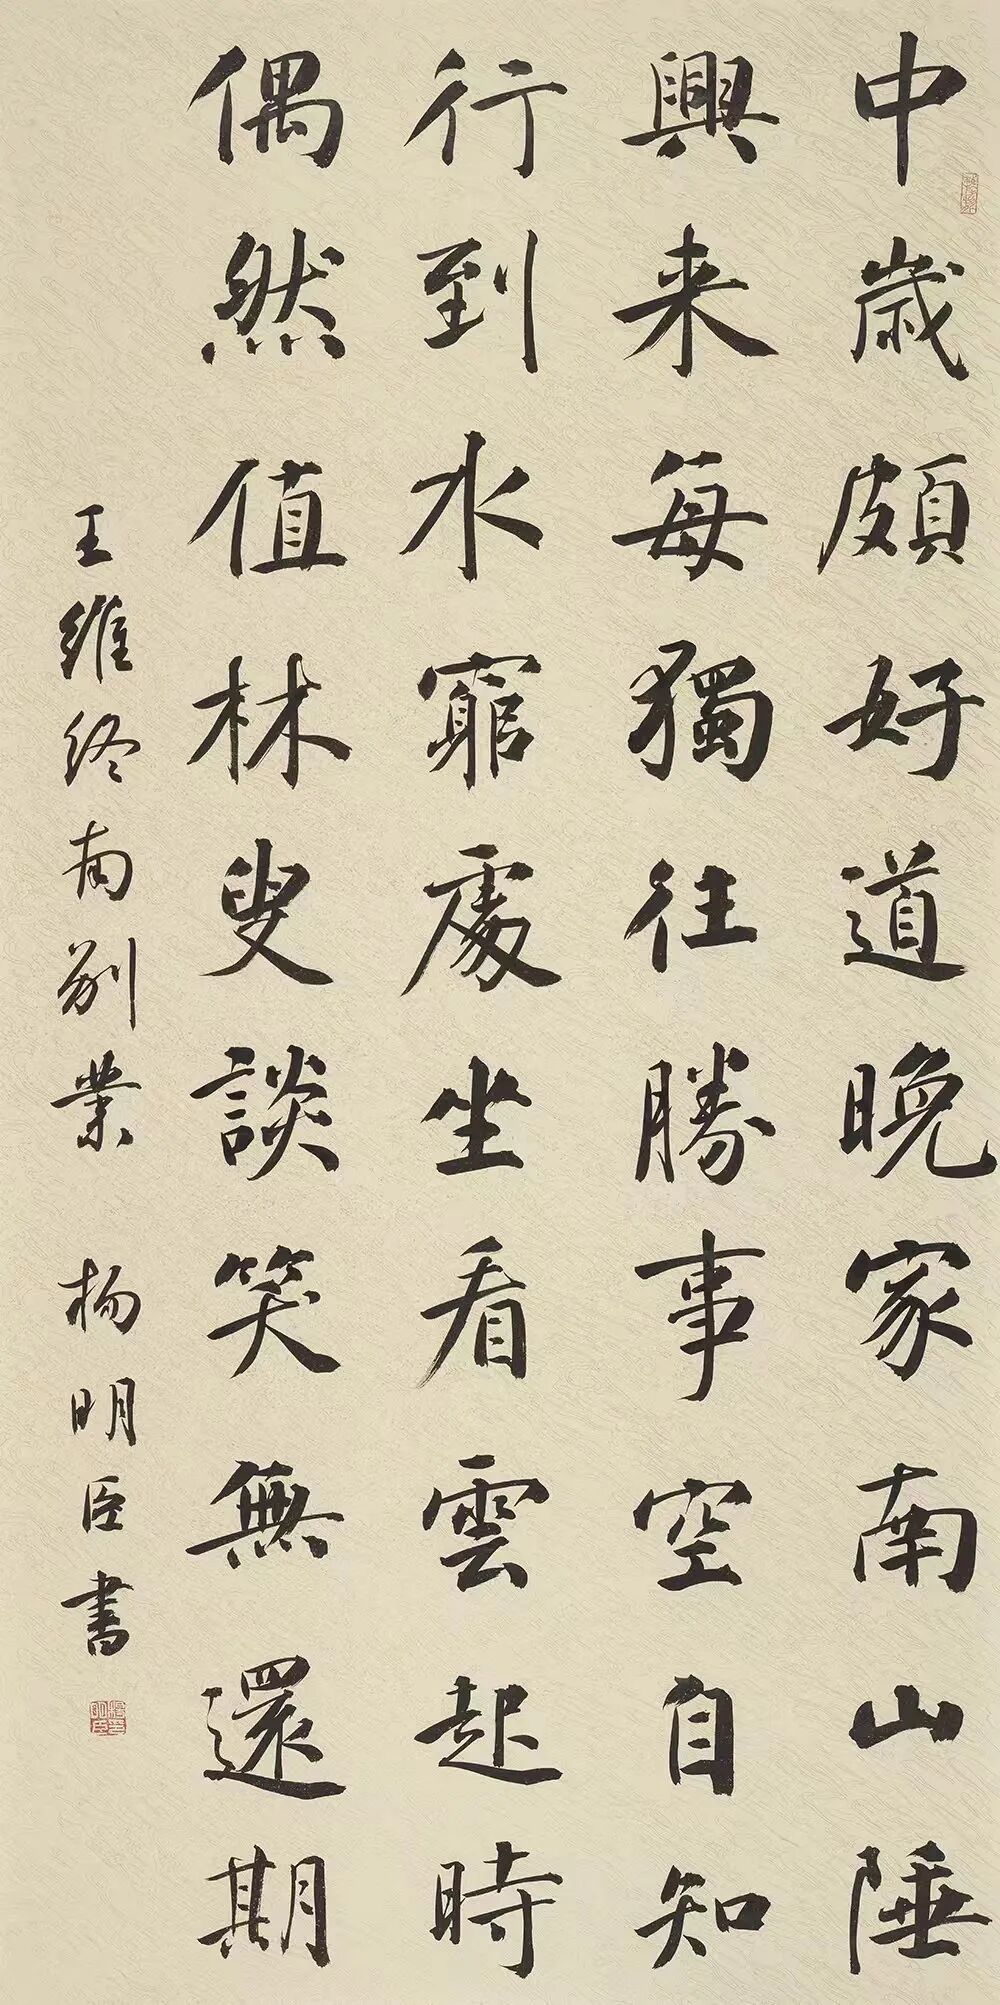 中歲頗好道晚家南山陲
興来每獨往勝事空自知
行到水窮處坐看雲起時
偶然值林叟談笑無還期
王維终南别業 杨明臣書